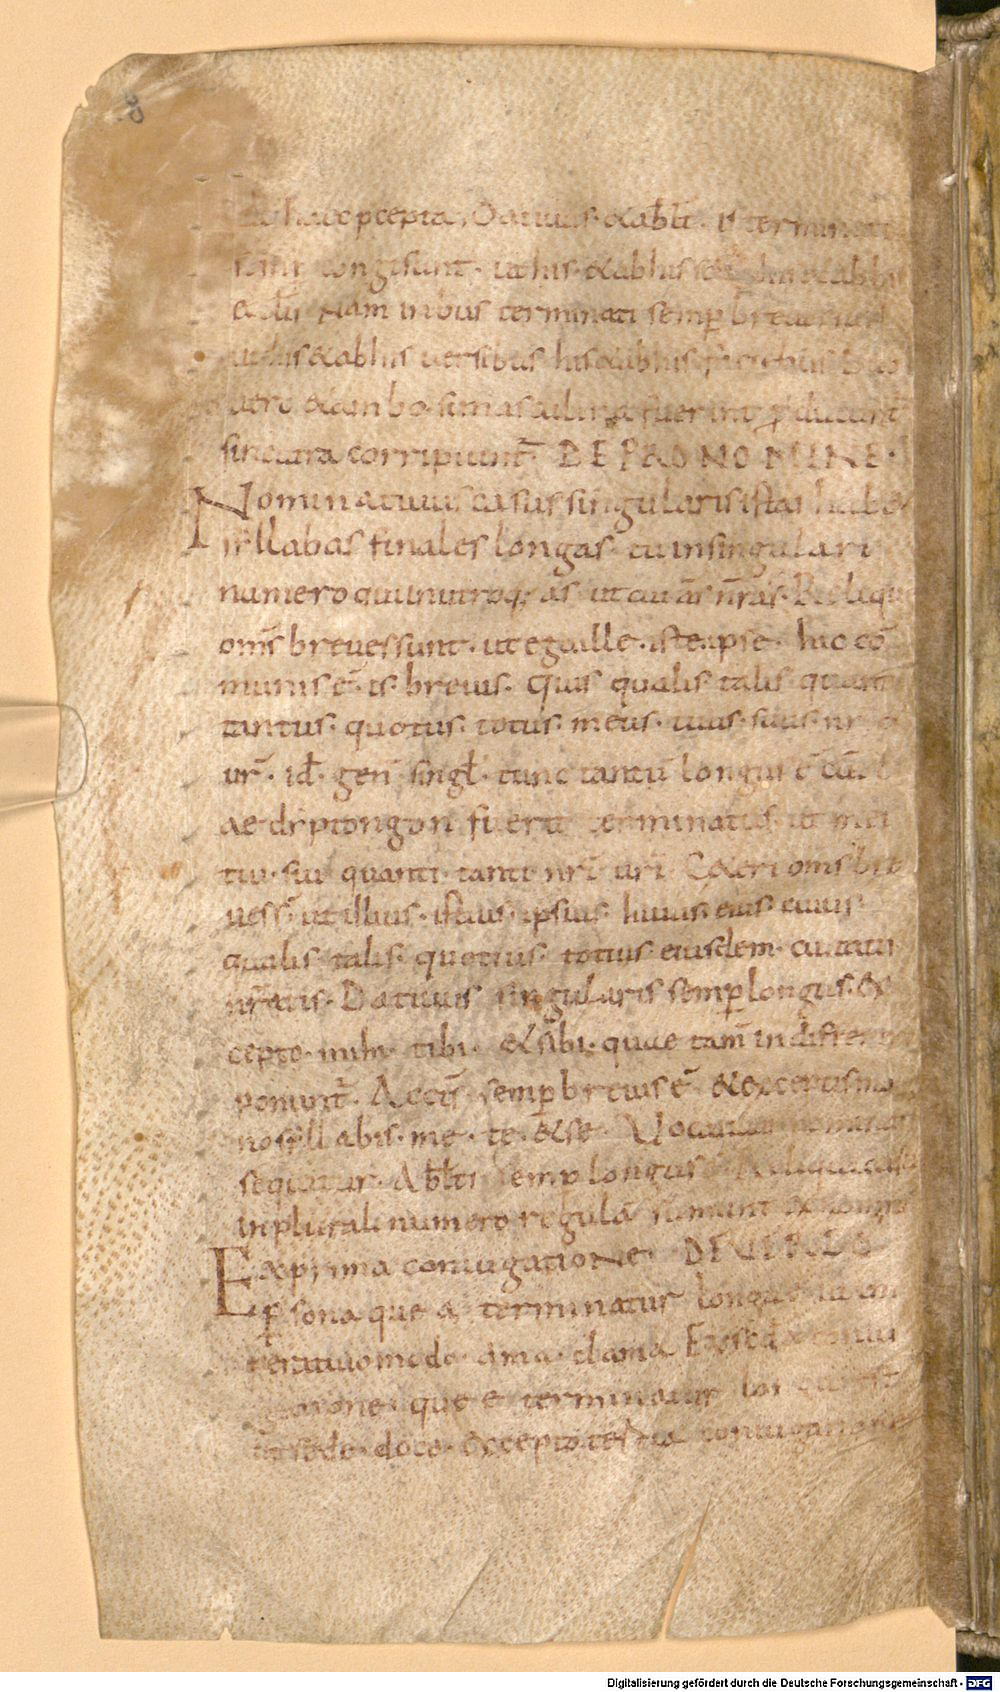 8
haec pcepta. Datiuus. & abłti. is terminati
longi sunt. ut his. & ab his
Nam in bus terminati semp breues
ut his & ab his uersibus his & ab his
uero & ambo. si masculina fuerint ꝓducunt
sin neutra corripiunt̄. DE PRONOMINE.
Nominatiuus casus singularis istas habet
sillabas finales longas. tu in singulari
numero qui in utroq; as ut cuias nr̄as. Reliqui
om̄s breues sunt. ut ego ille. iste. ipse. hic cō
munis ē. is. breuis. quis qualis talis quantus
tantus. quotus. totus. meus. tuus. suus. nr̄
ur̄. id. gen̄ singł. tunc tantū longus ē cū
ae diptongon fuerit terminatus. ut mei
tui. sui quanti. tanti nr̄i ur̄i. Ceteri om̄s bre
ues s̄. ut illius. istius. ipsius. huius. eius. cuius
qualis. talis. quotius. totius. eiusdem. cuiatis
nr̄atis. Datiuus singularis semp longus. ex
cepto. mihi. tibi. & sibi. quae tam̄ indifferenter
ponunt̄. Accūs semp breuis ē. & exceptis mo
nosillabis. me. te. & se. Vocatiuus nominat
sequitur. Abłti semp longus Reliqui casus
in plurali numero regulā sumunt ex nomine
Ex prima coniugatione. DE VERBO
psona que a. terminatur longa ut im
peratiuo modo. ama. clama Ex secda coniu
gatione. que e terminatur longa est
ut sede. doce. excepto tertia coniugatione
Digitalisierung gefördert durch die Deutsche Forschungsgemeinschaft - DFG